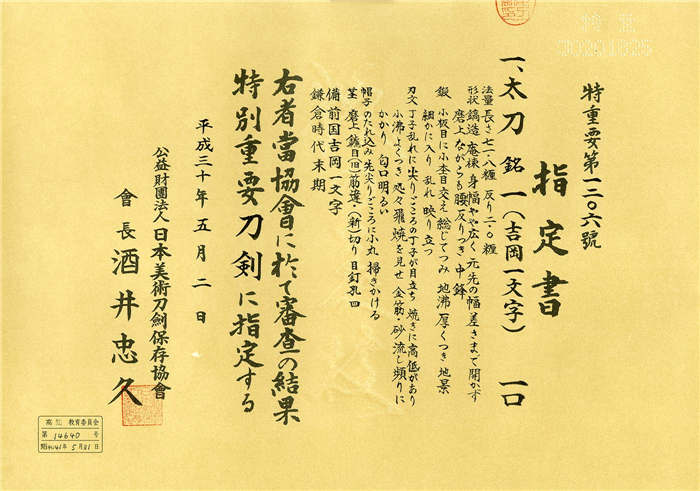 特重要第一二〇六號
指定書
一、太刀 銘 一(吉岡一文字) 一口
法量 長さ七一・八糎 反り二・〇糎
形状 鎬造 庵棟 身幅やや広く 元先の幅差きまで開かず
磨上ながらも腰反りつき 中鋒
鍛 小板目に小杢目交え 総じてつみ 地沸厚くつき 地景
細かに入り 乱れ映り立つ
刃文 丁子乱れに尖りごころの丁子が目立ち 焼きに高低があり
小沸よくつき 処々飛焼を見せ 金筋・砂流し頻りに
かかり 匂口明るい
帽子 のたれ込み 先尖りごころに小丸 掃きかける
茎 磨上 鑢目(旧)筋違・(新)切り 目釘孔四
備前国吉岡一文字
鎌倉時代末期
右者當協會に於て審査の結果
特別重要刀剣に指定する
平成三十年五月二日
公益財團法人 日本美術刀劍保存協會
會長 酒井忠久
教育委員会
第 14640 号
昭和41年5月31日